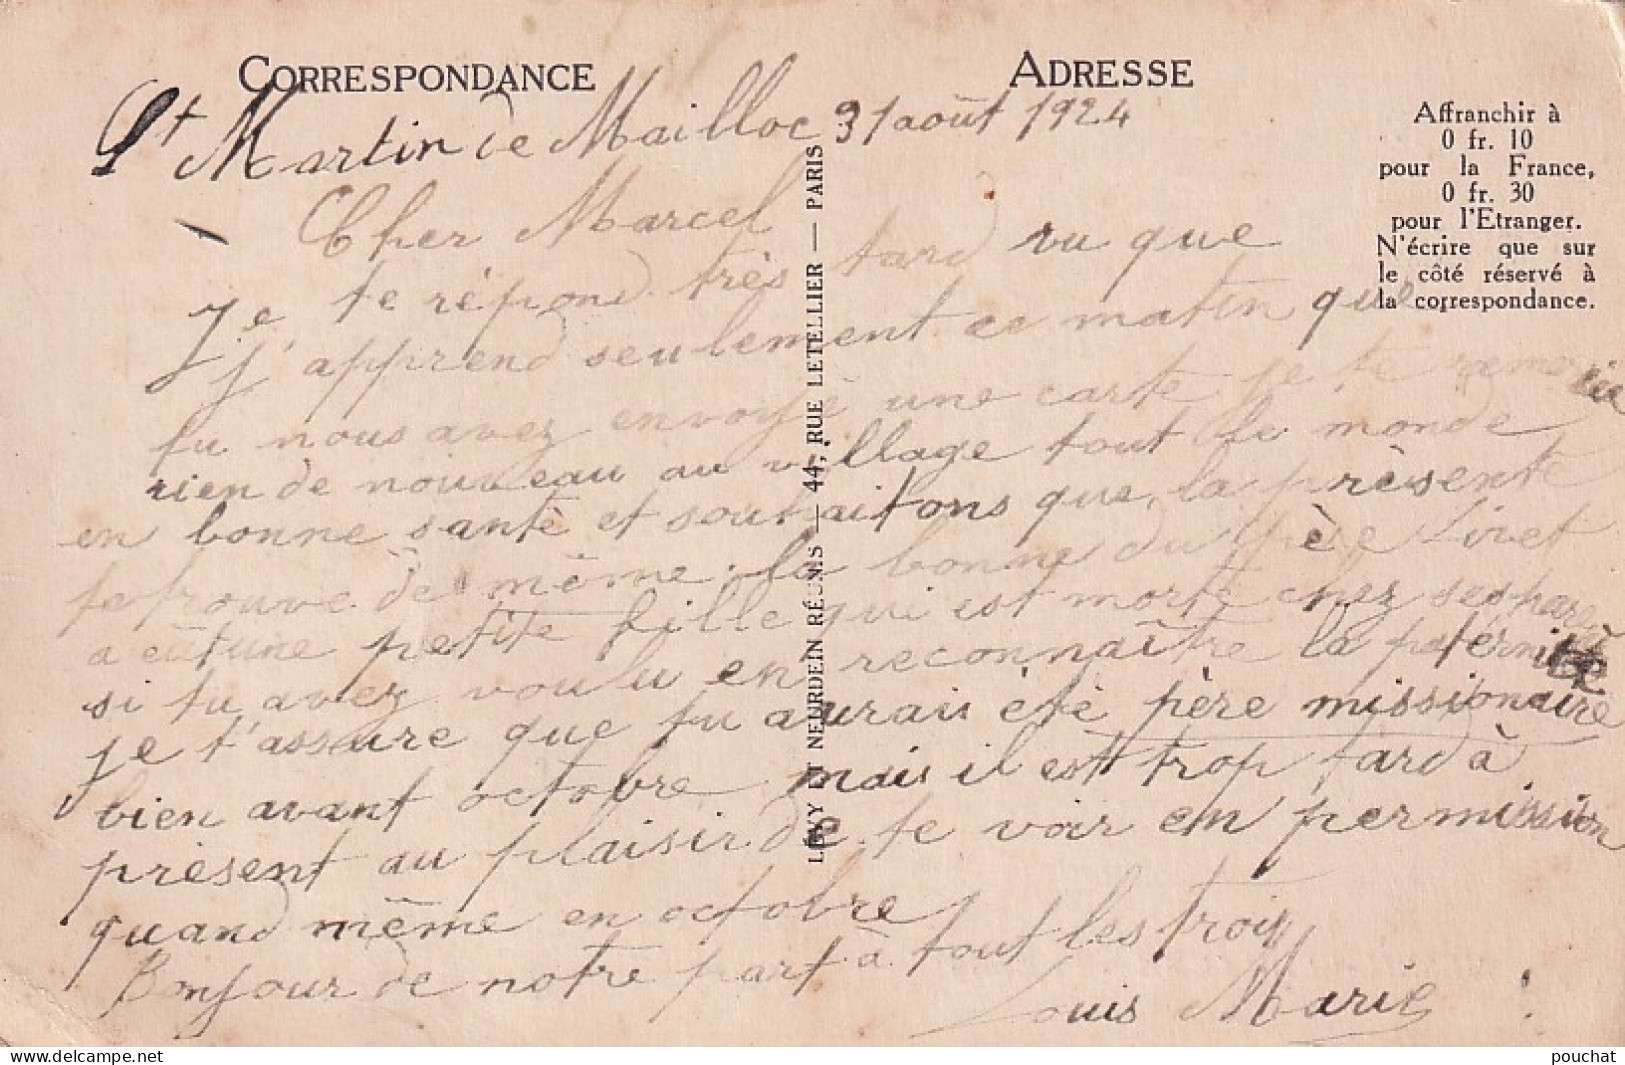 CORRESPONDANCE
ADRESSE
Affranchir à
0 fr. 10
pour la France,
0 fr. 30
pour l'Etranger.
N'écrire que sur
le côté réservé à
la correspondance.
LEVY ET NEURDEIN RÉUNIS — 44, RUE LETELLIER — PARIS
St Martin de Mailloc 31 août 1924
Cher Marcel
Je te répond très tard vu que
j'apprend seulement ce matin que
tu nous avez envoyé une carte je te remercie
rien de nouveau au village tout le monde
en bonne santé et souhaitons que la présente
te trouve de même. la bonne du père Livet
a eût une petite fille qui est morte chez ses parents
si tu avez voulu en reconnaître la paternité
je t'assure que tu aurais été père missionaire
bien avant octobre mais il est trop tard à
présent au plaisir de te voir en permission
quand même en octobre
Bonjour de notre part à tout les trois
Louis Marie
www.delcampe.net
pouchat